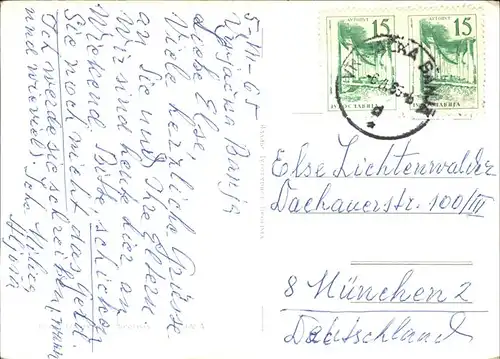 5-VI-65
Vrnjačka Banja
Liebe Else,
Viele herzliche Grüsse
an Sie und Ihre Eltern
Wir sind heute hier am
Wiekend. Bitte, schicken
Sie noch nicht das Geld.
Ich werde sie schreiben, wann
und wieviel). Sehr
15
15
JUGOSLAVIJA
Else Lichtenwalder
Dachauerstr. 100/III
8 München 2
Deutschland